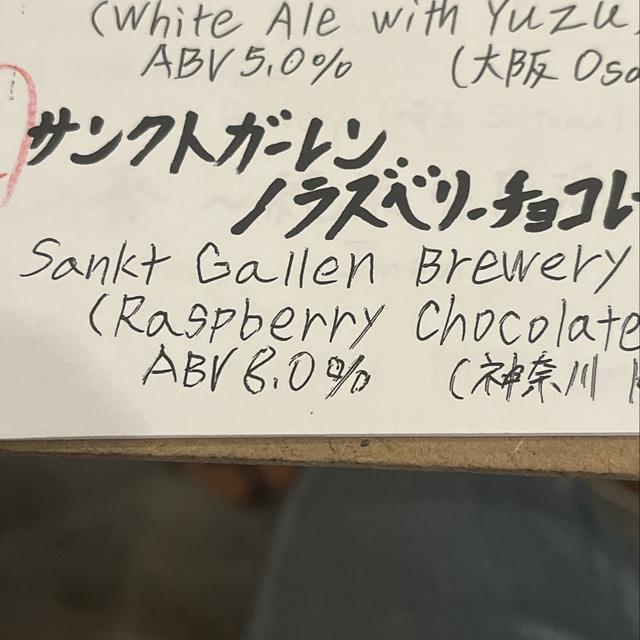 (White Ale with Yuzu
ABV 5.0% (大阪 Osa
サンクトガーレン
ノラズベリーチョコレ
Sankt Gallen Brewery
(Raspberry Chocolate
ABV 8.0% (神奈川